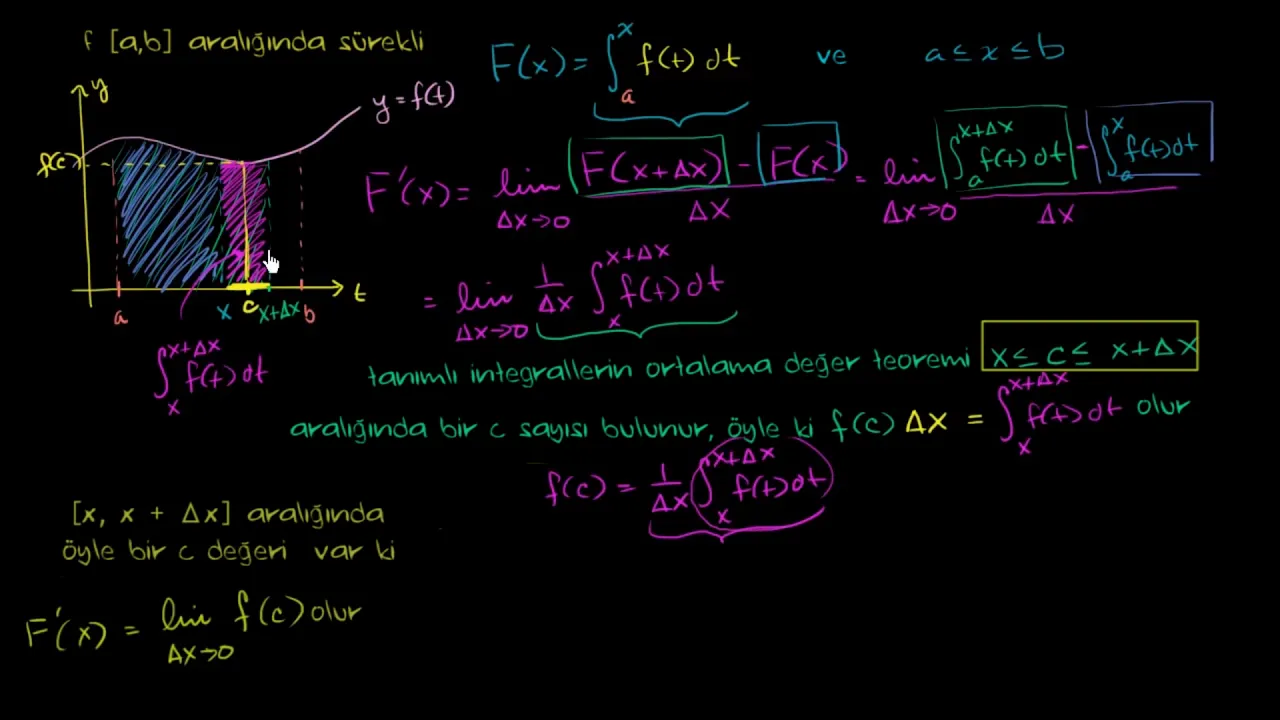 f [a,b] aralığında sürekli
F(x) = ∫ₐˣ f(t) dt ve a ≤ x ≤ b
y
y = f(t)
f(c)
F'(x) = lim Δx→0 (F(x+Δx) - F(x)) / Δx = lim Δx→0 (∫ₐˣ⁺ᐞˣ f(t) dt - ∫ₐˣ f(t) dt) / Δx
a x c x+Δx b t
= lim Δx→0 1/Δx ∫ₓˣ⁺ᐞˣ f(t) dt
∫ₓˣ⁺ᐞˣ f(t) dt
tanımlı integrallerin ortalama değer teoremi x ≤ c ≤ x+Δx
aralığında bir c sayısı bulunur, öyle ki f(c) Δx = ∫ₓˣ⁺ᐞˣ f(t) dt olur
f(c) = 1/Δx ∫ₓˣ⁺ᐞˣ f(t) dt
[x, x + Δx] aralığında
öyle bir c değeri var ki
F'(x) = lim Δx→0 f(c) olur